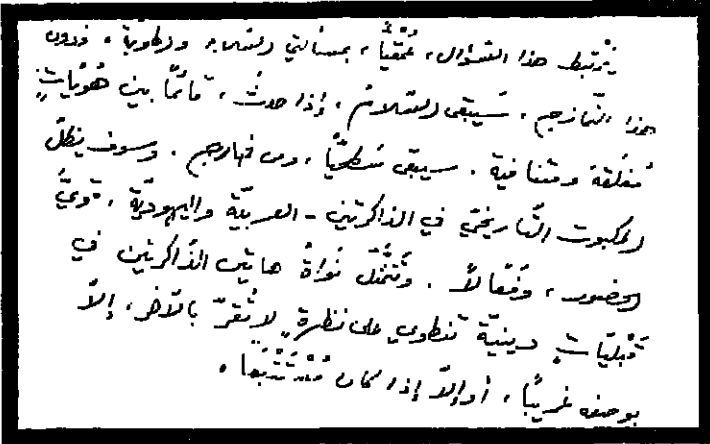 يَرتبط هذا السّؤال، عُمْقيّاً، بمسألتي السّلام والهاوية، فدون
هذا التّمازج، سَيبقى السّلامُ، إذا حدث، قائمًا بين هُويّاتٍ
مُغلَقة ومتنافية. سيبقى سَطحيّاً، ومن خارج. وسوف يظلّ
المكبوت التّاريخيّ في الذاكرتين - العربيّة واليهوديّة، قويَّ
الحضور، وفَعّالاً. وتَتمثّل نَواةُ هاتين الذّاكرتين في
قَبْليّاتٍ دينيّة تنطوي على نظرةٍ لا تُقرّ بالآخر، إلاّ
بوصفه غريبًا، أو إلاّ إذا كان